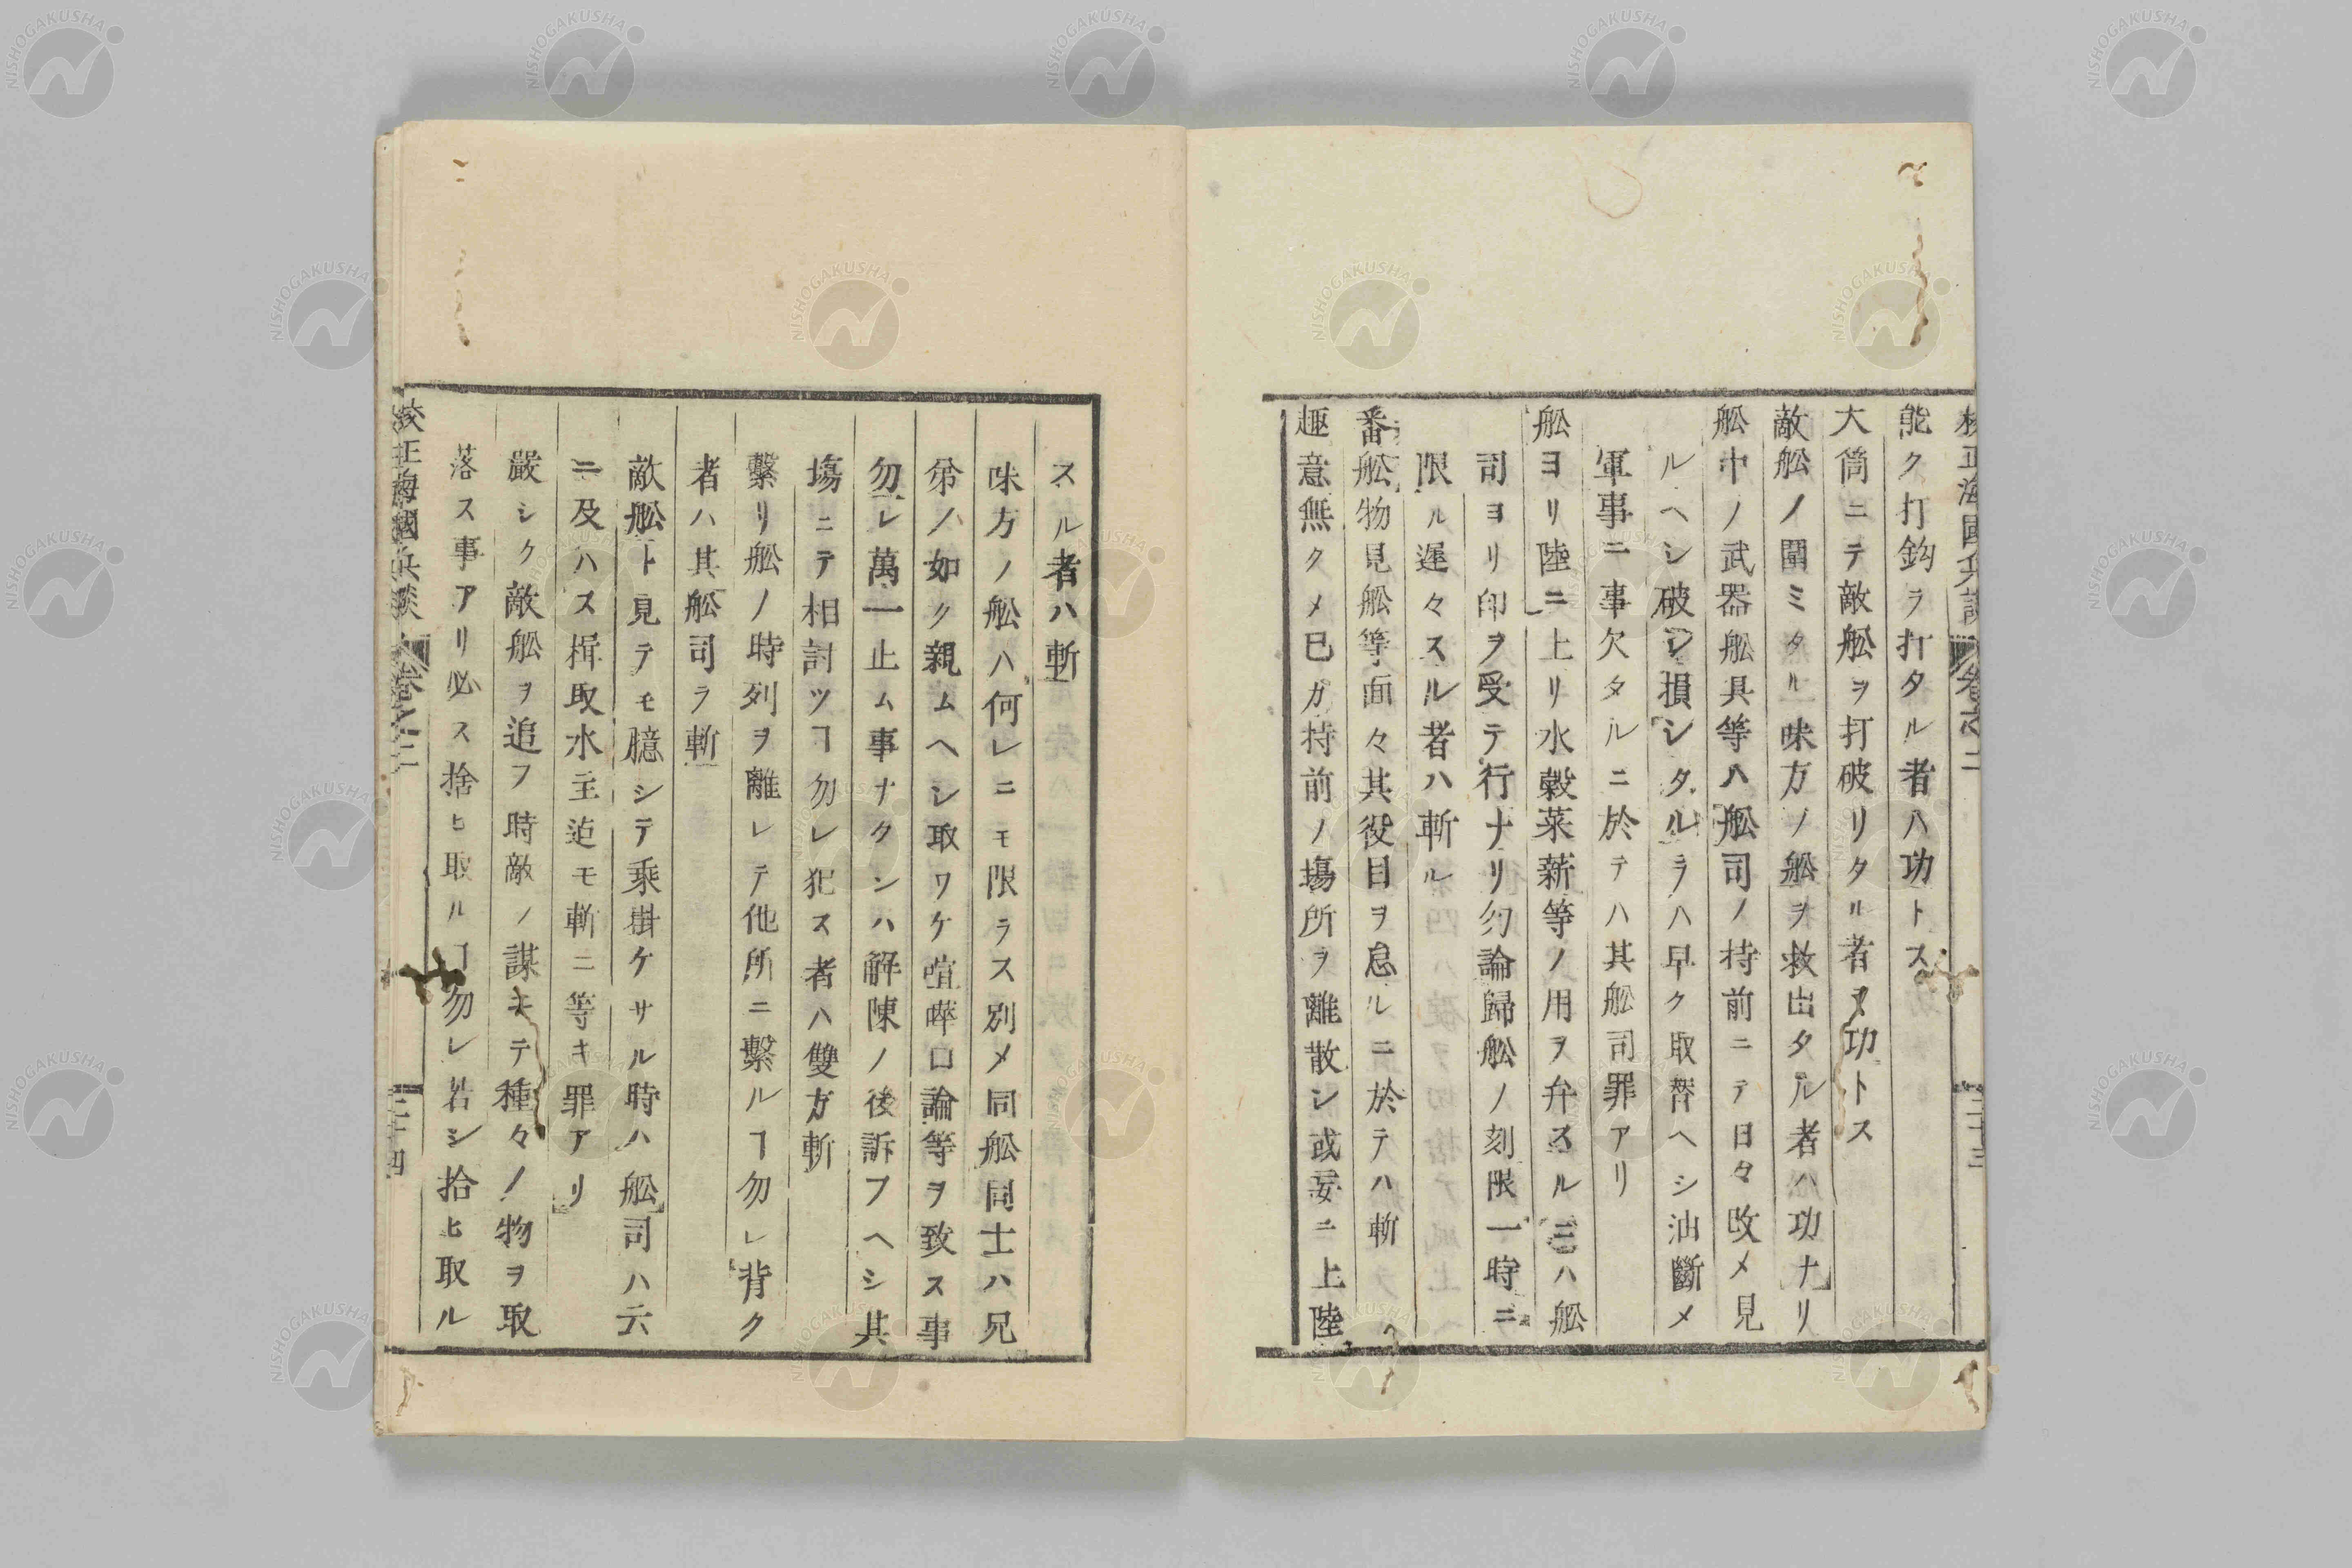 校正海國兵談 卷之二 三十三
能ク打鈎ヲ打タル者ハ功トス
大筒ニテ敵舩ヲ打破リタル者ヲ功トス
敵舩ノ圍ミタル味方ノ舩ヲ救出タル者ハ功ナリ
舩中ノ武器舩具等ハ舩司ノ持前ニテ日々改メ見
ルヘシ破レ損シタルヲハ早ク取替ヘシ油斷メ
軍事ニ事欠タルニ於テハ其舩司罪アリ
舩ヨリ陸ニ上リ水穀菜薪等ノ用ヲ弁スルニハ舩
司ヨリ印ヲ受テ行ナリ勿論歸舩ノ刻限一時ニ
限ル遲々スル者ハ斬ル
番舩物見舩等面々其役目ヲ怠ルニ於テハ斬ラヘ
趣意無クメ已カ持前ノ塲所ヲ離散シ或妄ニ上陸
スル者ハ斬
味方ノ舩ハ何レニモ限ラス別メ同舩同士ハ兄
弟ノ如ク親ムヘシ取ワケ喧嘩口論等ヲ致ス事
勿レ萬一止ム事ナクンハ解陳ノ後訴フヘシ其
塲ニテ相討ツヿ勿レ犯ス者ハ雙方斬
繋リ舩ノ時列ヲ離レテ他所ニ繋ルヿ勿レ背ク
者ハ其舩司ラ斬
敵舩ト見テモ臆シテ乘掛ケサル時ハ舩司ハ云
ニ及ハス楫取水主迠モ斬ニ等キ罪アリ
嚴シク敵舩ヲ追フ時敵ノ謀キテ種々ノ物ヲ取
落ス事アリ必ス捨ヒ取ルヿ勿レ若シ拾ヒ取ル
校正海國兵談 卷之二 三十四
NISHOGAKUSHA